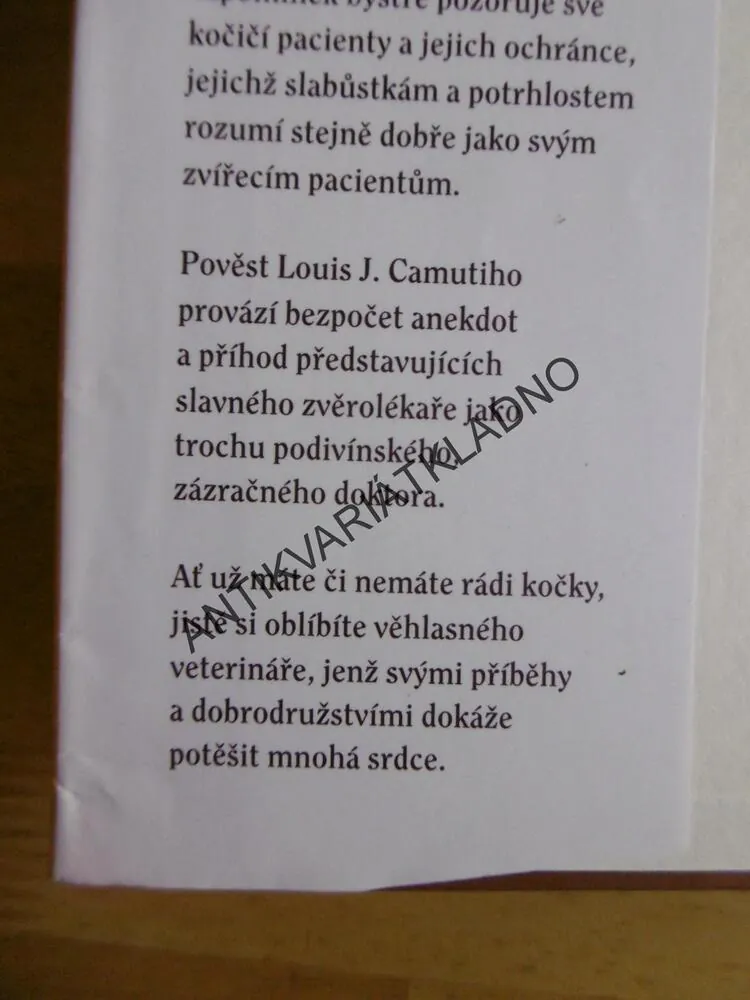 bystře pozoruje své
kočičí pacienty a jejich ochránce,
jejichž slabůstkám a potrhlostem
rozumí stejně dobře jako svým
zvířecím pacientům.
Pověst Louis J. Camutiho
provází bezpočet anekdot
a příhod představujících
slavného zvěrolékaře jako
trochu podivínského,
zázračného doktora.
Ať už máte či nemáte rádi kočky,
jistě si oblíbíte věhlasného
veterináře, jenž svými příběhy
a dobrodružstvími dokáže
potěšit mnohá srdce.
ANTIKVARIÁT KLADNO